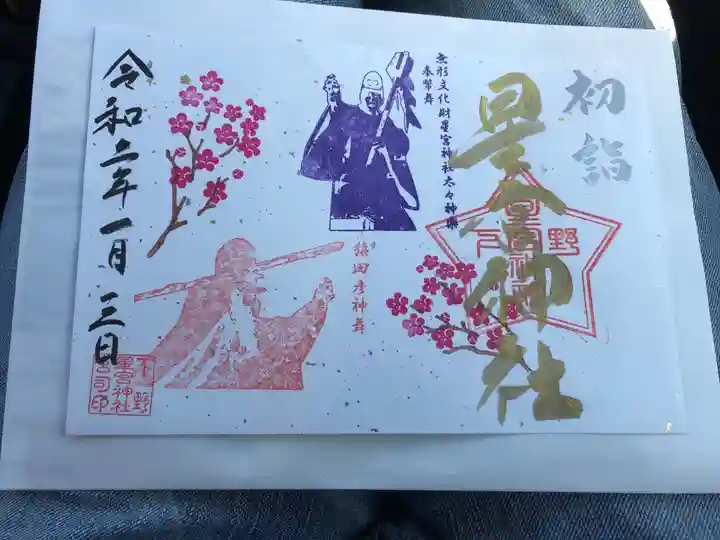 初詣
星宮神社
下野
星宮神社
無形文化財星宮神社太々神楽
奉幣舞
猿田彦神舞
令和二年一月三日
下野
星宮神社
宮司印